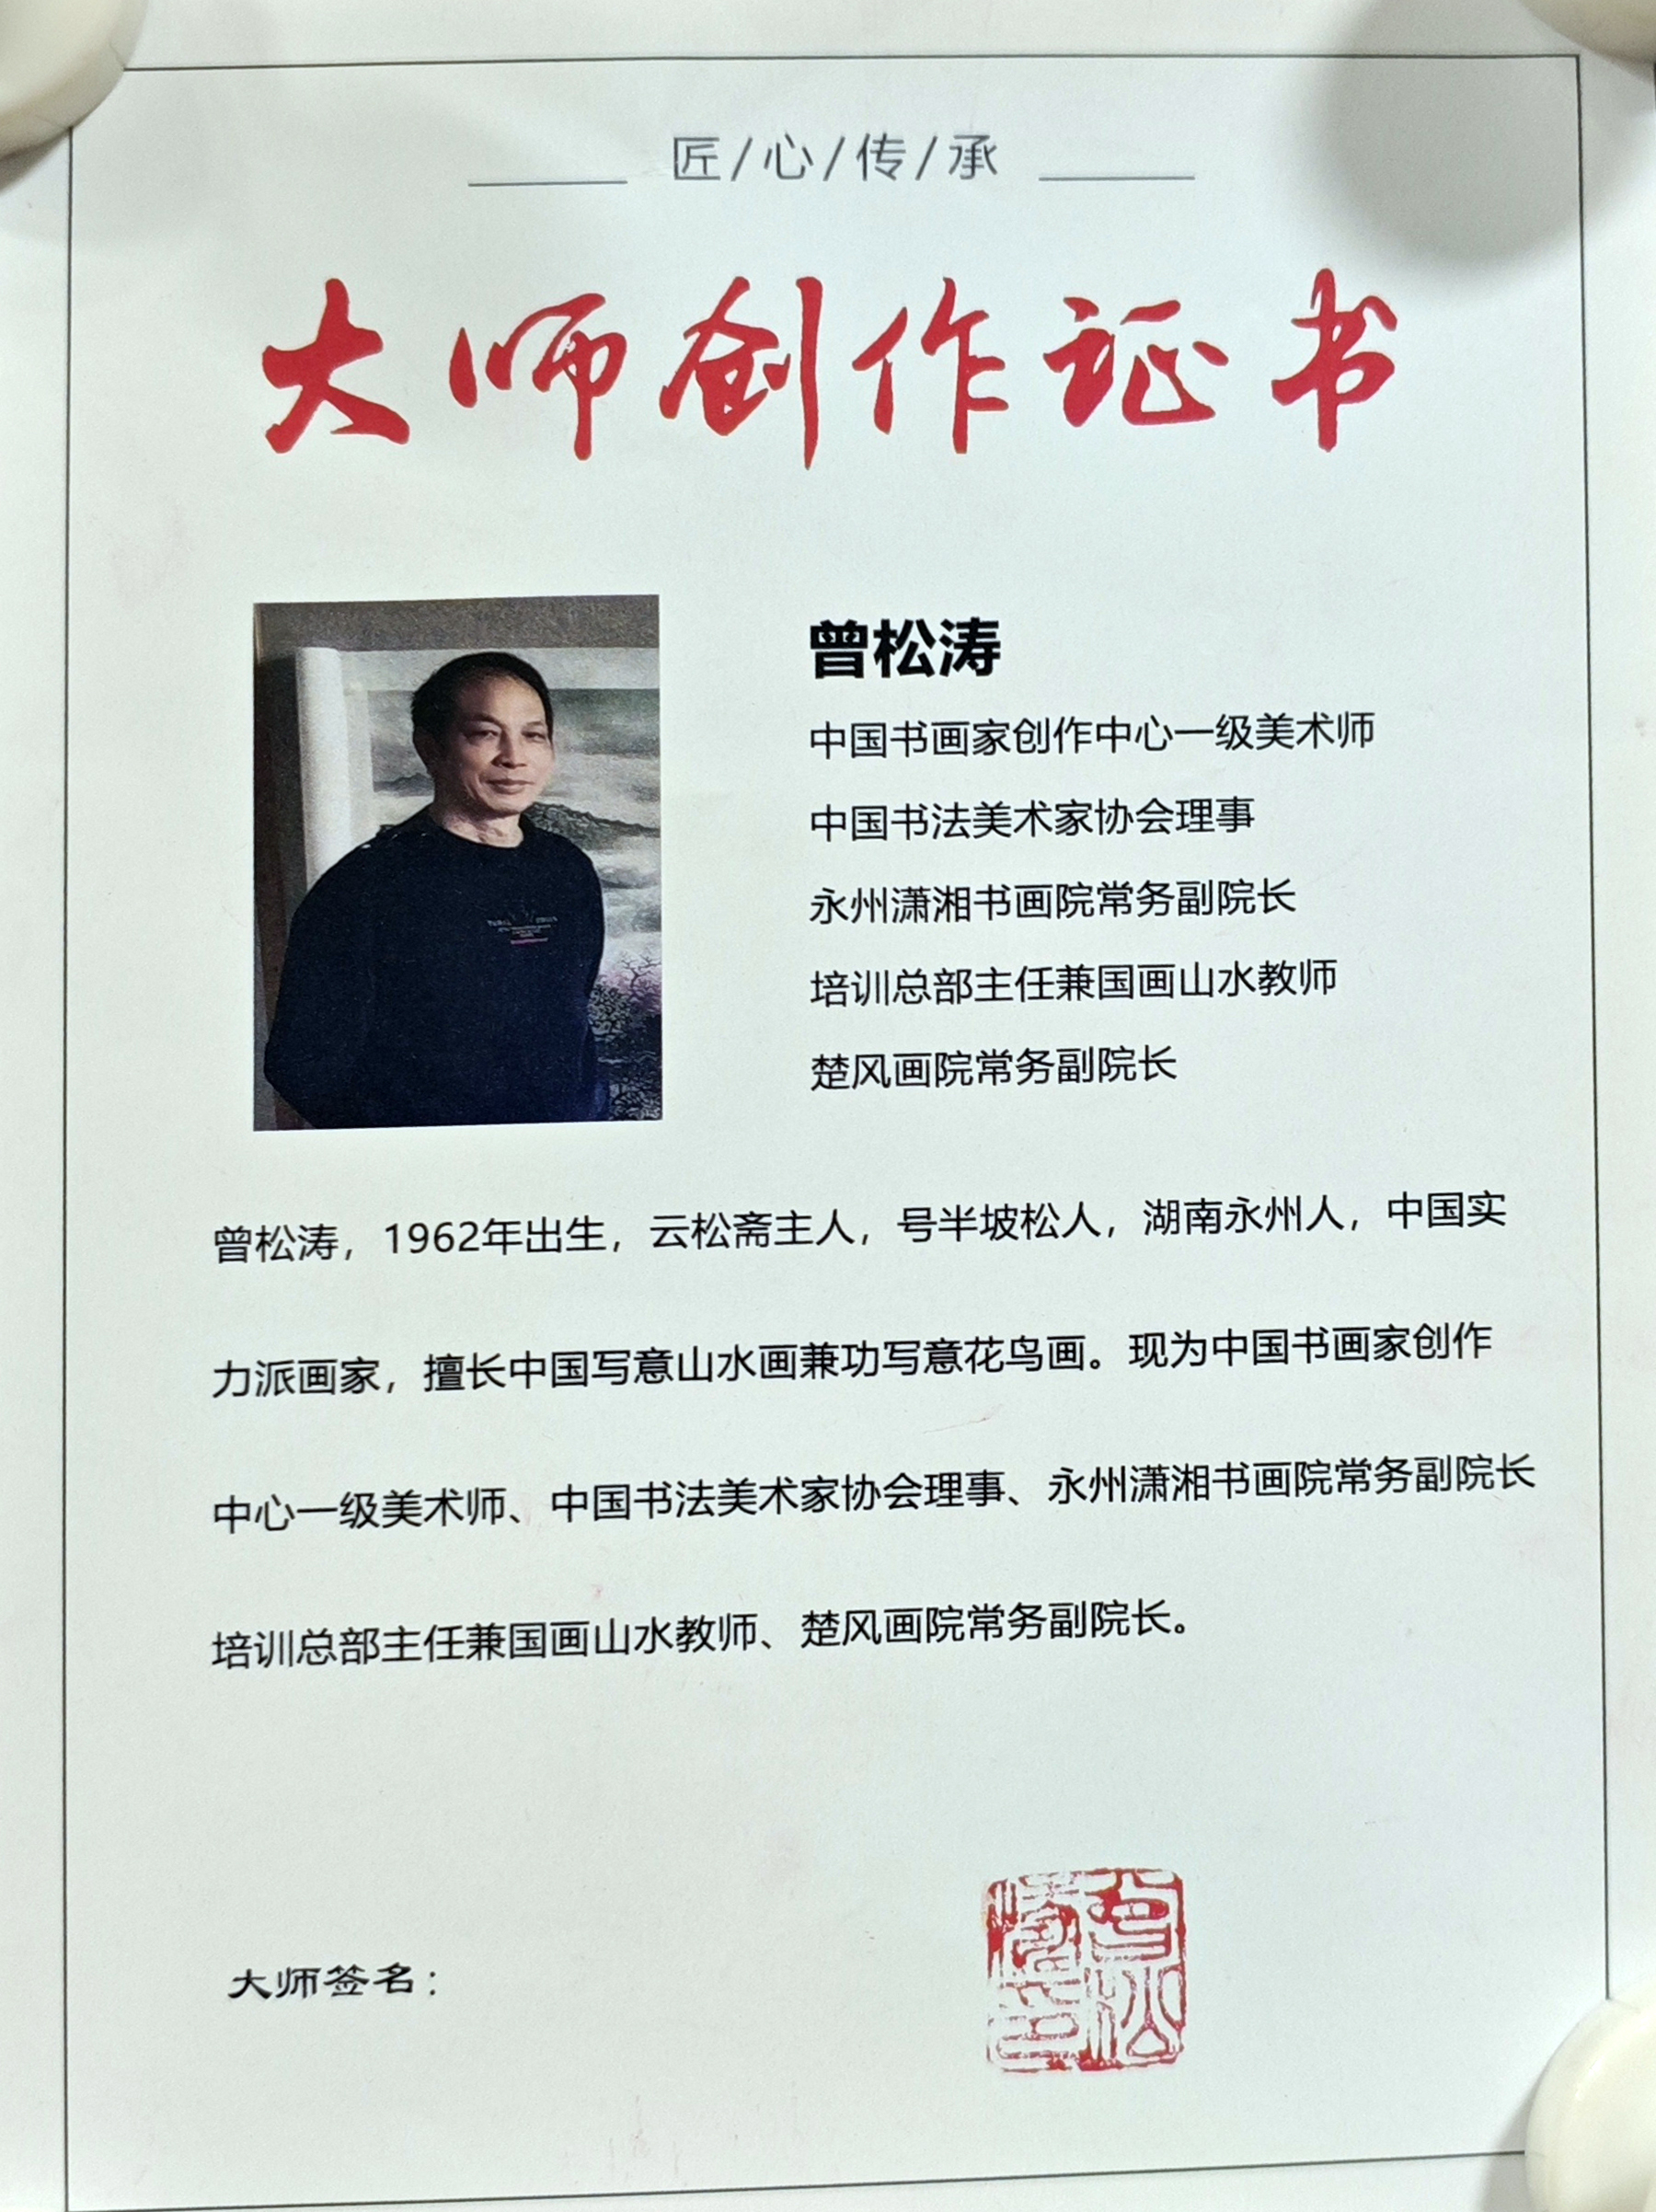 匠/心/传/承
大师创作证书
曾松涛
中国书画家创作中心一级美术师
中国书法美术家协会理事
永州潇湘书画院常务副院长
培训总部主任兼国画山水教师
楚风画院常务副院长
曾松涛，1962年出生，云松斋主人，号半坡松人，湖南永州人，中国实
力派画家，擅长中国写意山水画兼功写意花鸟画。现为中国书画家创作
中心一级美术师、中国书法美术家协会理事、永州潇湘书画院常务副院长
培训总部主任兼国画山水教师、楚风画院常务副院长。
大师签名：
曾松
涛印